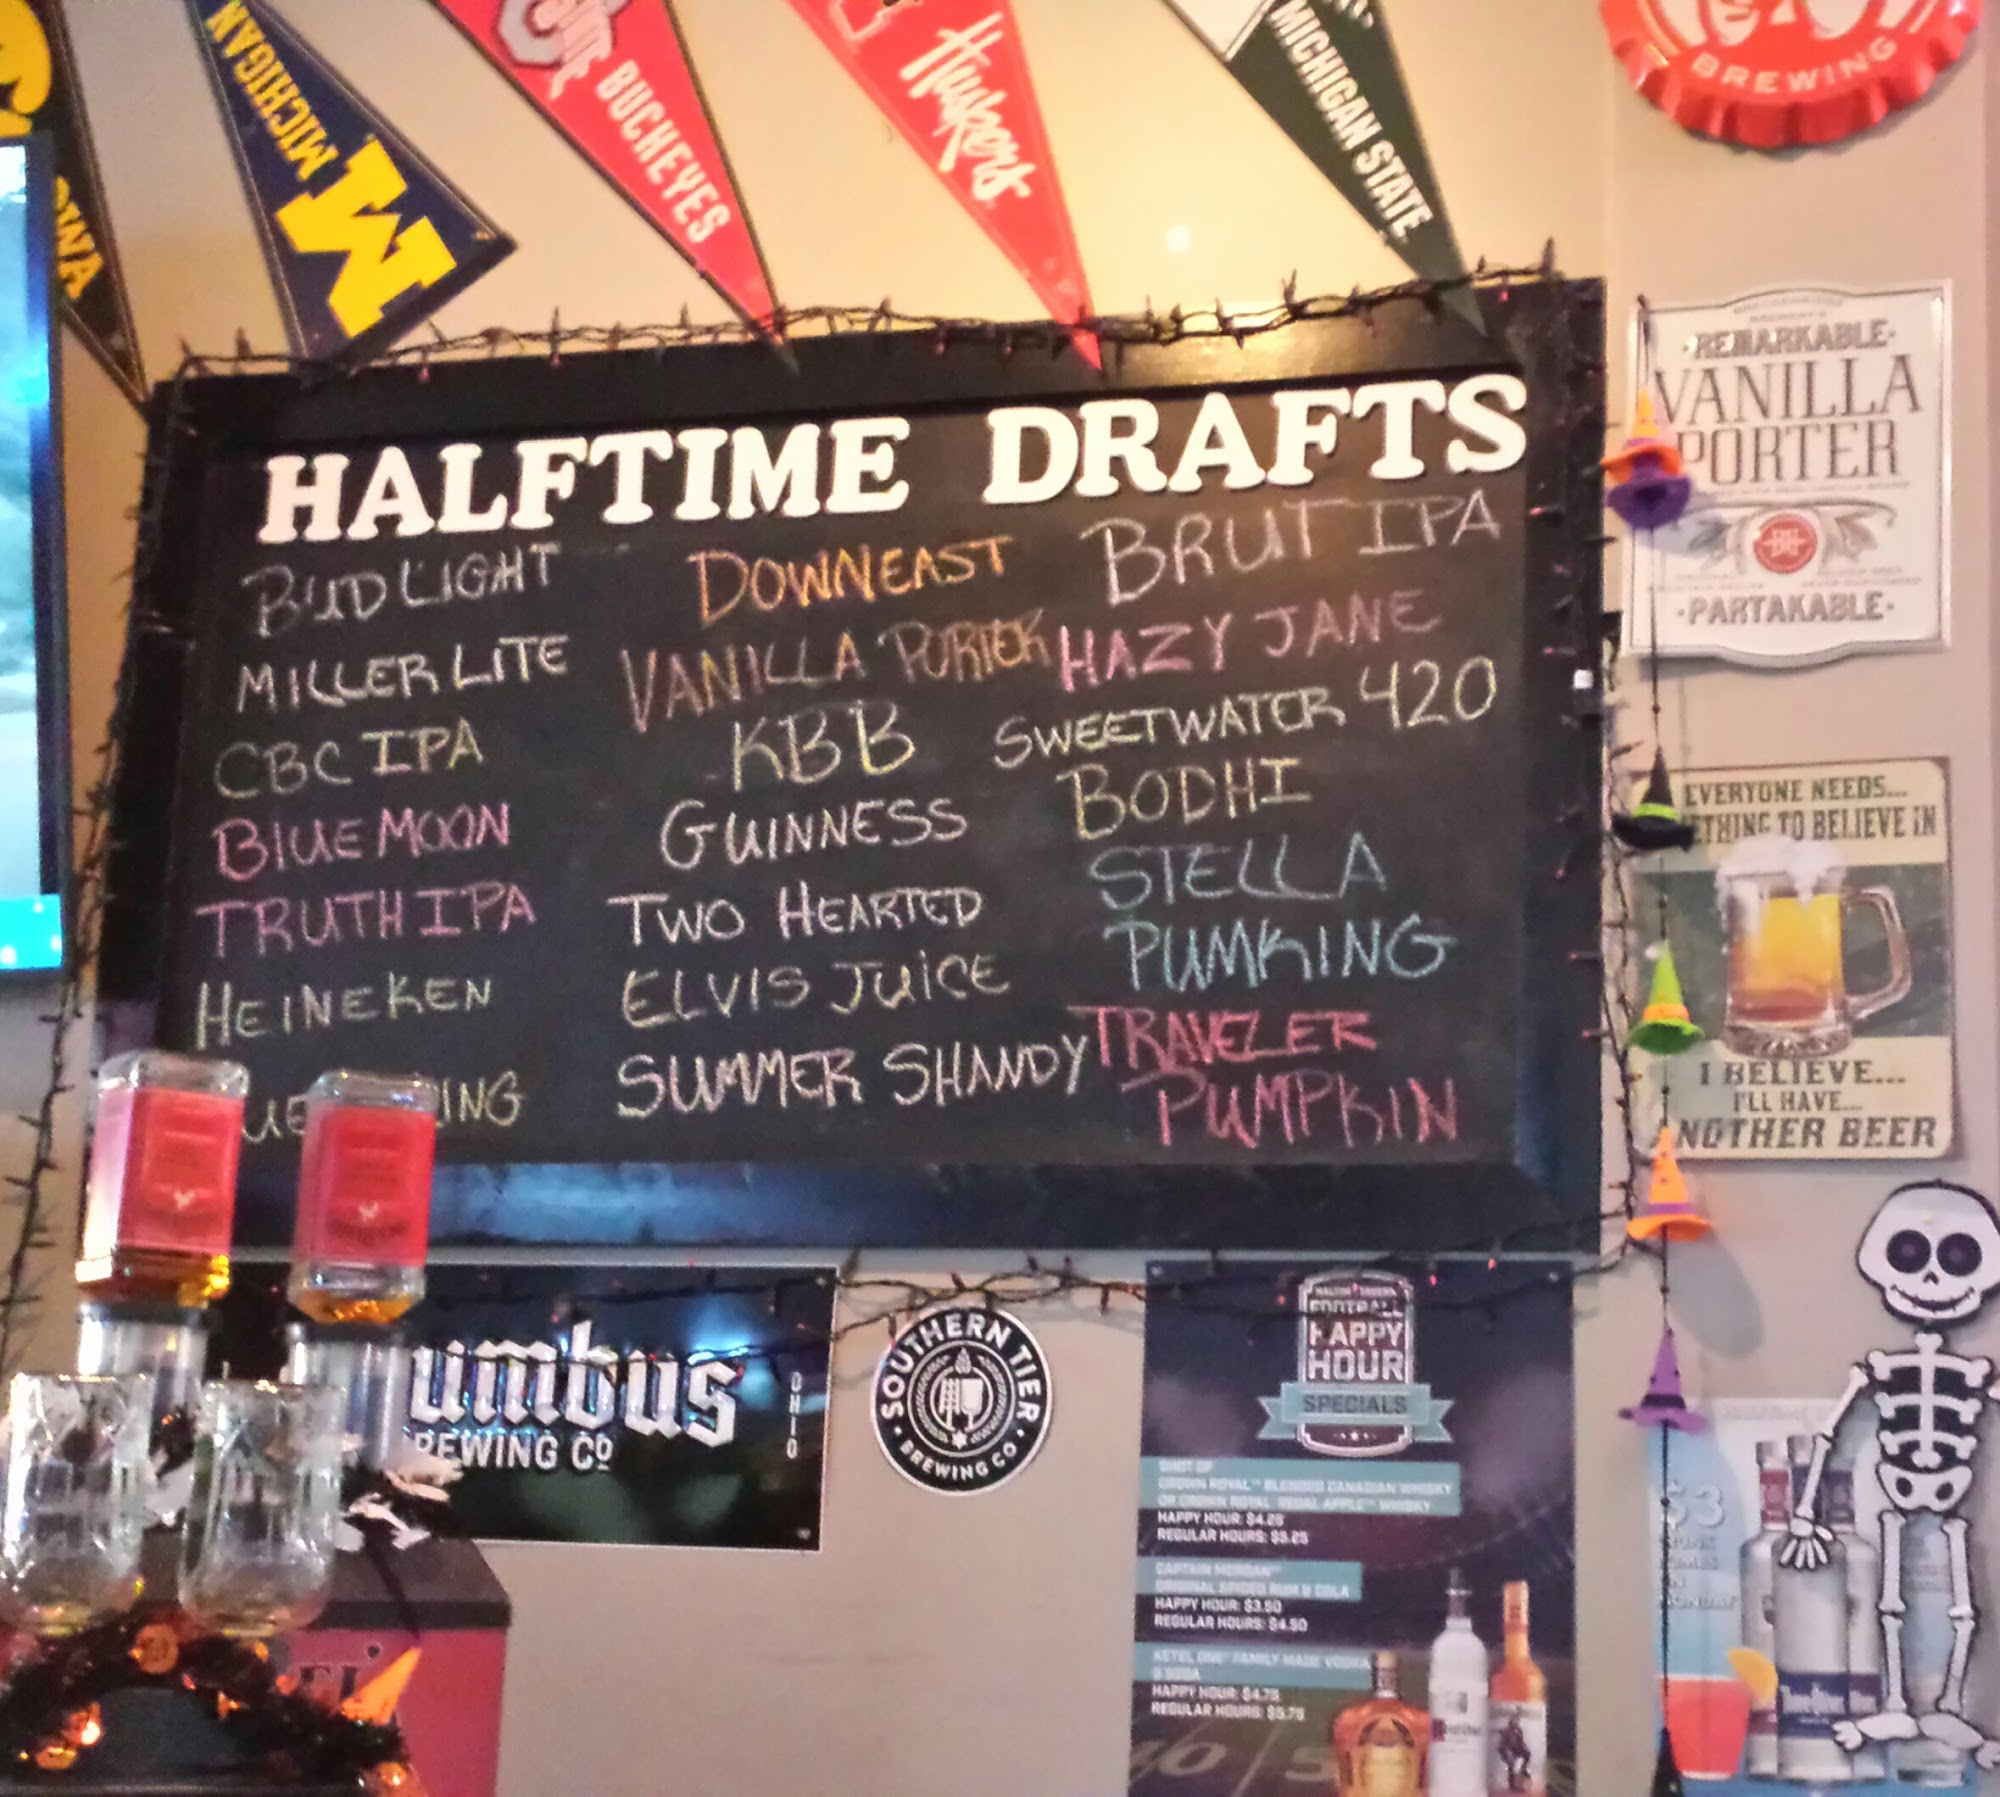 IOWA
MICHIGAN
M
STATE
BUCKEYES
Huskers
MICHIGAN STATE
BREWING
HALFTIME DRAFTS
BUD LIGHT
MILLER LITE
CBC IPA
BLUE MOON
TRUTH IPA
HEINEKEN
UE
ING
DOWNEAST
VANILLA PORTER
KBB
GUINNESS
TWO HEARTED
ELVIS JUICE
SUMMER SHANDY
BRUT IPA
HAZY JANE
SWEETWATER 420
BODHI
STELLA
PUMKING
TRAVELER
PUMPKIN
·REMARKABLE·
VANILLA
PORTER
·PARTAKABLE·
EVERYONE NEEDS...
ETHING TO BELIEVE IN
I BELIEVE...
I'LL HAVE...
NOTHER BEER
umbus
REWING Co
OHIO
SOUTHERN TIER
· BREWING CO ·
FOOTBALL
HAPPY
HOUR
SPECIALS
SHOT OF
CROWN ROYAL™ BLENDED CANADIAN WHISKY
OR CROWN ROYAL REGAL APPLE™ WHISKY
HAPPY HOUR: $4.25
REGULAR HOURS: $5.25
CAPTAIN MORGAN™
ORIGINAL SPICED RUM & COLA
HAPPY HOUR: $3.50
REGULAR HOURS: $4.50
KETEL ONE™ FAMILY MADE VODKA
& SODA
HAPPY HOUR: $4.75
REGULAR HOURS: $5.75
$3